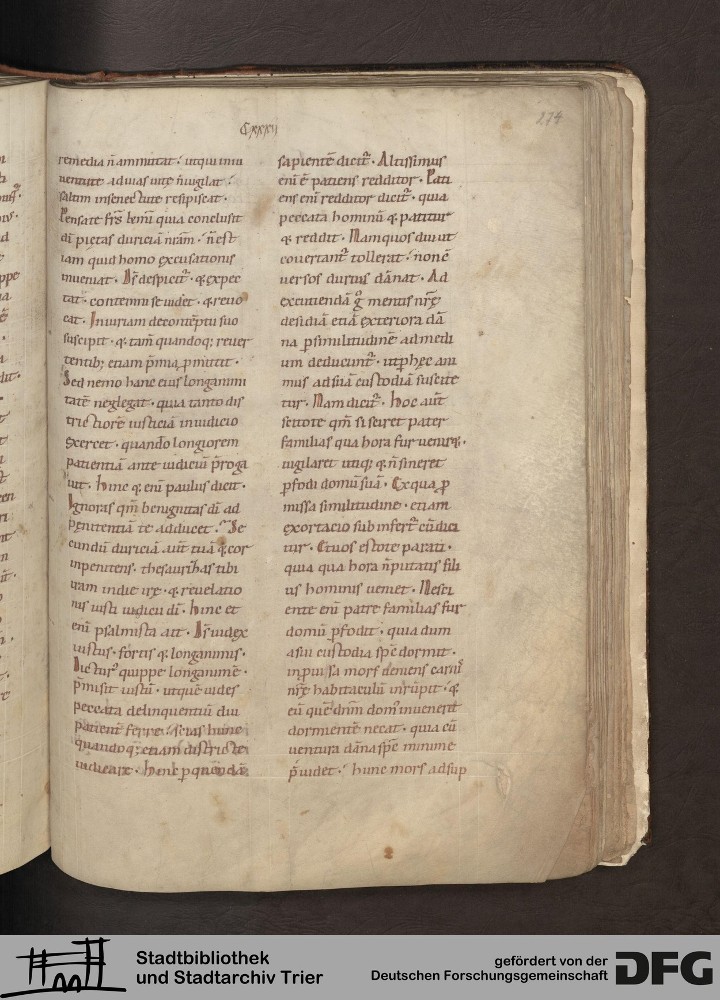 Cxxxii
274
remedia n̄ ammittat · utqui in iu
uentute ad uias uitę n̄ uigilat ·
saltim in senectute resipiscat ·
Pensate fr̄s km̄i quia conclusit
dī pietas duriciā nr̄am · n̄ est
iam quid homo excusationis
inueniat · D̄s despicit᷑ · & expec
tat · contemni se uidet · & reuo
cat · Iniuriam de contēptu suo
suscipit · & tam̄ quandoq; reuer
tentib; etiam p̄mia p̄mittit ·
Sed nemo hanc eius longanimi
tatē neglegat · quia tanto dis
trictiorē iusticiā in iudicio
exercet · quando longiorem
patientiā ante iudiciū p̄roga
uit · Hinc & eni paulus dicit ·
Ignoras qm̄ benignitas dī ad
penitentiā te adducet · Se
cundū duriciā aut̄ tuā & cor
inpenitens · thesaurizas tibi
iram in die irę · & reuelatio
nis iusti iudicii dī · Hinc et
enī psalmista ait · D̄s iudex
iustus · fortis & longanimus ·
Dictur᷒ quippe longanimē ·
p̄misit iustū · utquē uides
peccata delinquentiū diu
patient̄ ferre · scias hunc
quandoq; etiam districte
iudicare · Hinc p quendā
sapientē dicit᷑ · Altissimus
enī ē patiens redditor · Pati
ens enī redditor dicit᷑ · quia
peccata hominū & patitur
& reddit · Nam quos diu ut
cōuertant᷑ tollerat · non cō
uersos durius dānat · Ad
excutiendā g̊ mentis nr̄ę
desidiā etiā exteriora dā
na p similitudinē ad medi
um deducunt᷑ · ut p hęc ani
mus ad suā custodiā suscite
tur · Nam dicit᷑ · Hoc aut̄
scitote qm̄ si sciret pater
familias qua hora fur uenir& ·
uigilaret utiq; & n̄ sineret
pfodi domū suā · Ex qua p
missa similitudine · etiam
exortacio subinfert᷑ cū dici
tur · Et uos estote parati ·
quia qua hora n̄ putatis fili
us hominis ueniet · Nesci
ente enī patre familias fur
domū pfodit · quia dum
a sui custodia sp̄c dormit ·
inprouisa mors ueniens carnis
nr̄ę habitaculū inrūpit · &
eū quē dn̄m dom᷒ inuenerit
dormientē necat · quia cū
uentura dāna sp̄c minime
p̄uidet · hunc mors ad sup
Stadtbibliothek
und Stadtarchiv Trier
gefördert von der
Deutschen Forschungsgemeinschaft
DFG